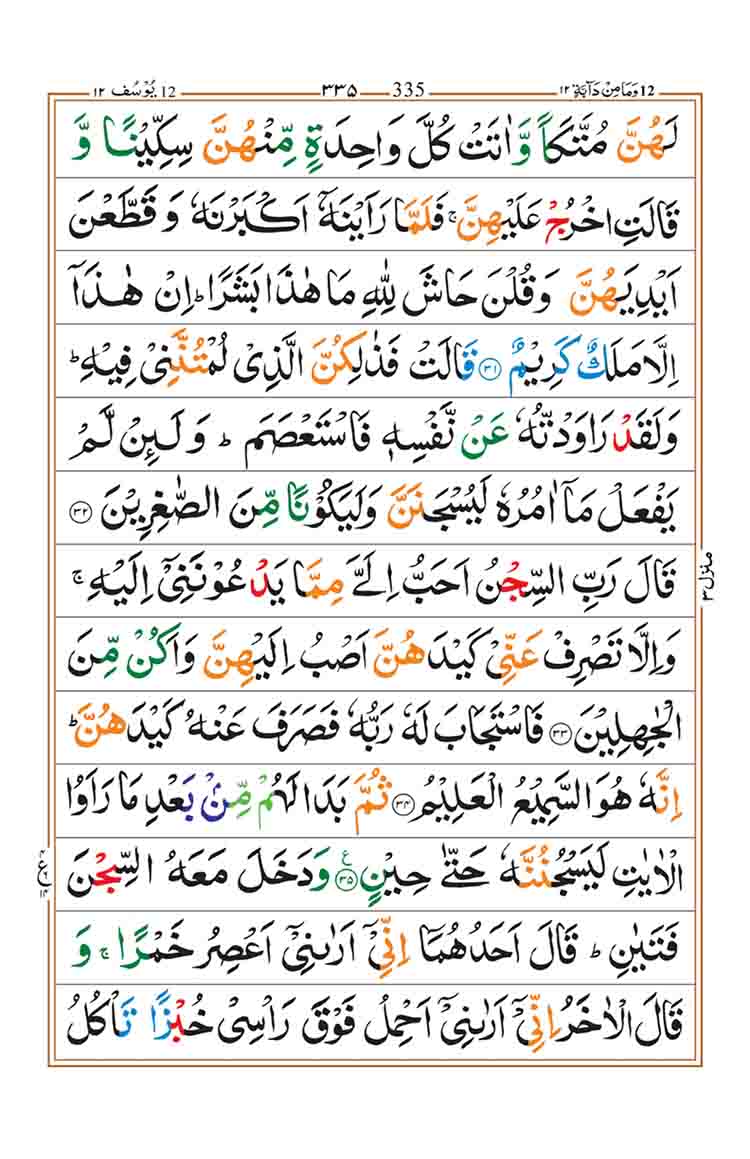 12 وَمَا مِنْ دَآبَّةٍ ١٢ 335 ٣٣٥ 12 يُوْسُف ١٢
لَهُنَّ مُتَّكَاً وَّاٰتَتْ كُلَّ وَاحِدَةٍ مِّنْهُنَّ سِكِّيْنًا وَّ
قَالَتِ اخْرُجْ عَلَيْهِنَّ ۚ فَلَمَّا رَاَيْنَهٗۤ اَكْبَرْنَهٗ وَ قَطَّعْنَ
اَيْدِيَهُنَّ وَقُلْنَ حَاشَ لِلّٰهِ مَا هٰذَا بَشَرًا ؕ اِنْ هٰذَاۤ
اِلَّا مَلَكٌ كَرِيْمٌ ٣١ قَالَتْ فَذٰلِكُنَّ الَّذِیْ لُمْتُنَّنِیْ فِيْهِ ؕ
وَلَقَدْ رَاوَدْتُّهٗ عَنْ نَّفْسِهٖ فَاسْتَعْصَمَ ؕ وَلَىِٕنْ لَّمْ
يَفْعَلْ مَاۤ اٰمُرُهٗ لَيُسْجَنَنَّ وَلَيَكُوْنًا مِّنَ الصّٰغِرِيْنَ ٣٢
قَالَ رَبِّ السِّجْنُ اَحَبُّ اِلَیَّ مِمَّا يَدْعُوْنَنِیْۤ اِلَيْهِ ۚ
وَاِلَّا تَصْرِفْ عَنِّیْ كَيْدَهُنَّ اَصْبُ اِلَيْهِنَّ وَاَكُنْ مِّنَ
الْجٰهِلِيْنَ ٣٣ فَاسْتَجَابَ لَهٗ رَبُّهٗ فَصَرَفَ عَنْهُ كَيْدَهُنَّ ؕ
اِنَّهٗ هُوَ السَّمِيْعُ الْعَلِيْمُ ٣٤ ثُمَّ بَدَا لَهُمْ مِّنْۢ بَعْدِ مَا رَاَوُا
الْاٰيٰتِ لَيَسْجُنُنَّهٗ حَتّٰی حِيْنٍ ٣٥ ع وَدَخَلَ مَعَهُ السِّجْنَ
فَتَيٰنِ ؕ قَالَ اَحَدُهُمَاۤ اِنِّیْۤ اَرٰىنِیْۤ اَعْصِرُ خَمْرًا ۚ وَ
قَالَ الْاٰخَرُ اِنِّیْۤ اَرٰىنِیْۤ اَحْمِلُ فَوْقَ رَاْسِیْ خُبْزًا تَاْكُلُ
منزل ٣
ع